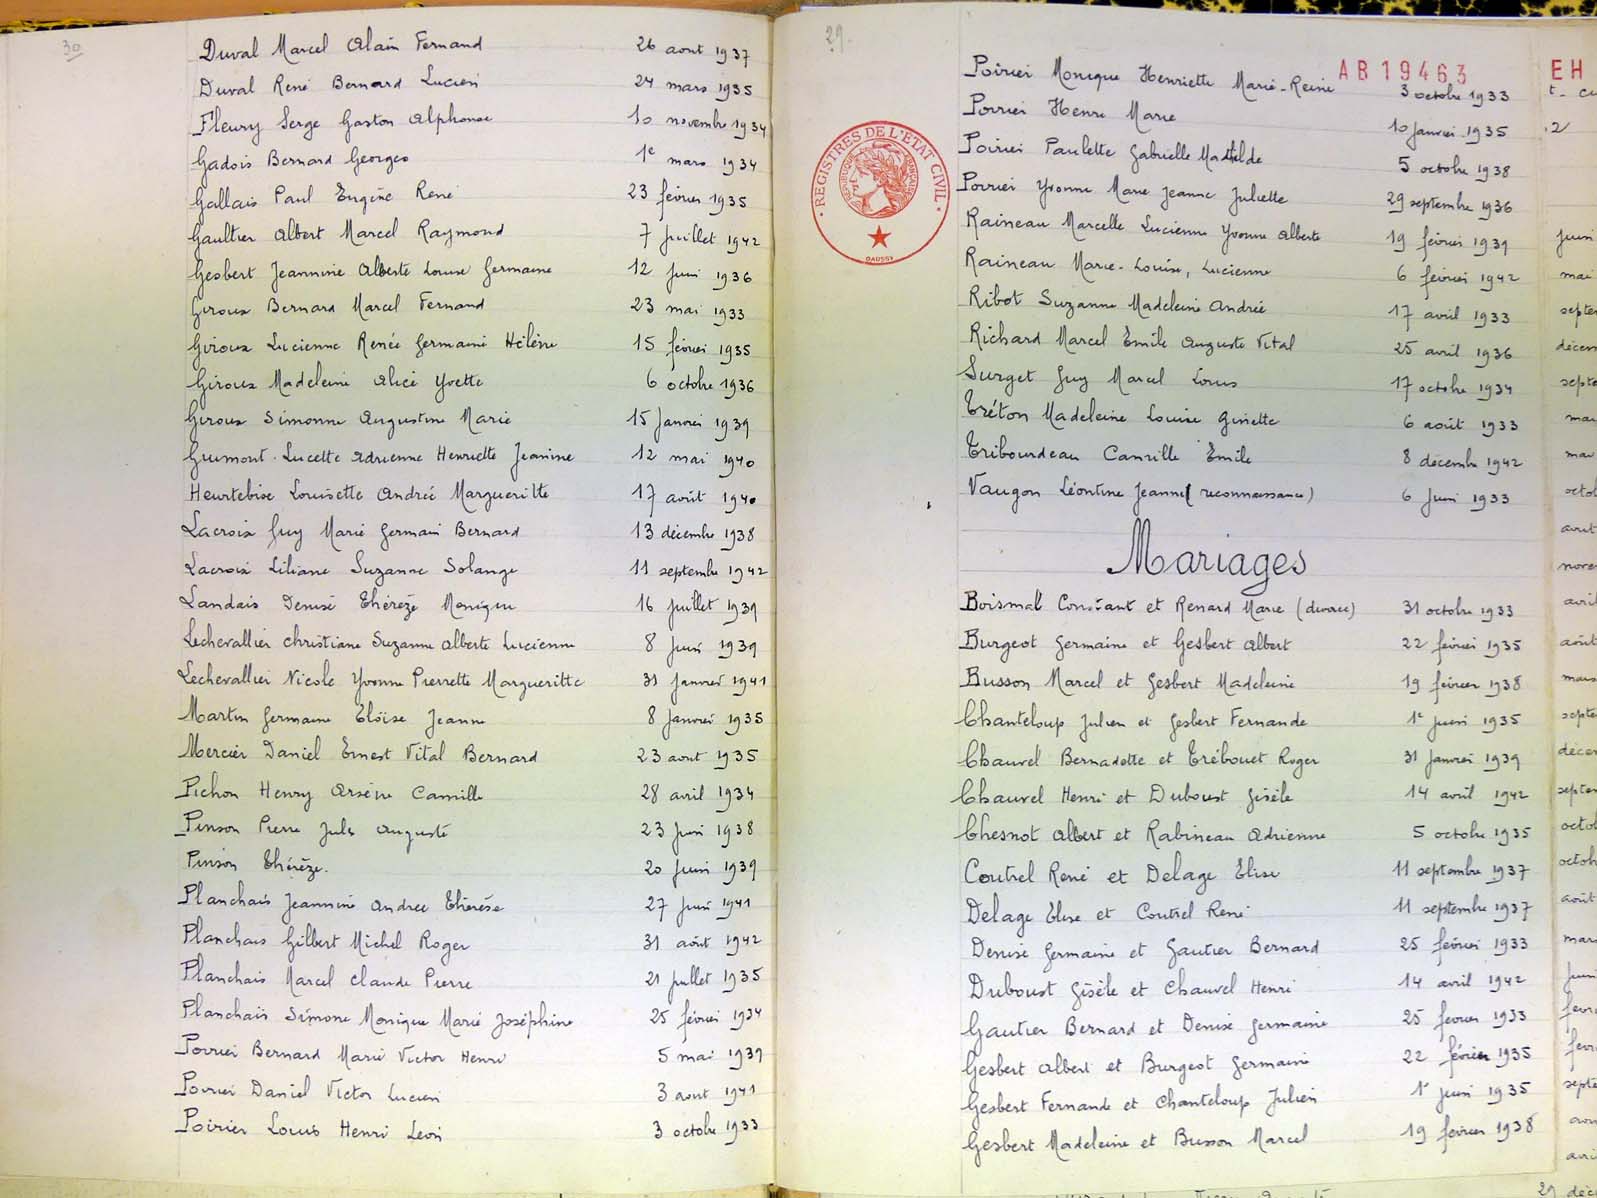 30
Duval Marcel Alain Fernand 26 aout 1937
Duval René Bernard Lucien 24 mars 1935
Fleury Serge Gaston Alphonse 10 novembre 1934
Gadois Bernard Georges 1e mars 1934
Gallais Paul Eugène René 23 février 1935
Gaultier Albert Marcel Raymond 7 juillet 1942
Gesbert Jeannine Alberte Louise Germaine 12 juin 1936
Giroux Bernard Marcel Fernand 23 mai 1933
Giroux Lucienne Renée Germaine Hélène 15 février 1935
Giroux Madeleine Alice Yvette 6 octobre 1936
Giroux Simonne Augustine Marie 15 janvier 1939
Guimont Lucette Adrienne Henriette Jeanine 12 mai 1940
Heurtebise Louisette Andrée Margueritte 17 août 1940
Lacroix Guy Marie Germain Bernard 13 décembre 1938
Lacroix Liliane Suzanne Solange 11 septembre 1942
Landais Denise Thérèze Monique 16 juillet 1939
Lechevallier Christiane Suzanne Alberte Lucienne 8 juin 1939
Lechevallier Nicole Yvonne Pierrette Margueritte 31 janvier 1941
Martin Germaine Eloïse Jeanne 8 janvier 1935
Mercier Daniel Ernest Vital Bernard 23 aout 1935
Pichon Henry Arsène Camille 28 avril 1934
Pinson Pierre Jules Auguste 23 juin 1938
Pinson Thérèze. 20 juin 1939
Planchais Jeannine Andrée Thérèse 27 juin 1941
Planchais Gilbert Michel Roger 31 août 1942
Planchais Marcel Claude Pierre 21 juillet 1935
Planchais Simone Monique Marie Joséphine 25 février 1934
Poirier Bernard Marie Victor Henri 5 mai 1939
Poirier Daniel Victor Lucien 3 aout 1941
Poirier Louis Henri Léon 3 octobre 1933
29.
AB19463
EH
REGISTRES DE L'ETAT CIVIL
REPUBLIQUE FRANÇAISE
Poirier Monique Henriette Marie-Reine 3 octobre 1933
Poirier Henri Marie 10 janvier 1935
Poirier Paulette Gabrielle Mathilde 5 octobre 1938
Poirier Yvonne Marie Jeanne Juliette 29 septembre 1936
Raineau Marcelle Lucienne Yvonne Alberte 19 février 1939
Raineau Marie-Louise, Lucienne 6 février 1942
Ribot Suzanne Madeleine Andrée 17 avril 1933
Richard Marcel Emile Auguste Vital 25 avril 1936
Surget Guy Marcel Louis 17 octobre 1934
Tréton Madeleine Louise Ginette 6 août 1933
Tribourdeau Camille Emile 8 décembre 1942
Vaugon Léontine Jeanne (reconnaissance) 6 juin 1933
Mariages
Boismal Constant et Renard Marie (divorce) 31 octobre 1933
Burgeot Germaine et Gesbert Albert 22 février 1935
Busson Marcel et Gesbert Madeleine 19 février 1938
Chanteloup Julien et Gesbert Fernande 1e juin 1935
Chauvel Bernadette et Trébouet Roger 31 janvier 1939
Chauvel Henri et Duboust Gisèle 14 avril 1942
Chesnot Albert et Rabineau Adrienne 5 octobre 1935
Coutrel René et Delage Elise 11 septembre 1937
Delage Elise et Coutrel René 11 septembre 1937
Denise Germaine et Gautier Bernard 25 février 1933
Duboust Gisèle et Chauvel Henri 14 avril 1942
Gautier Bernard et Denise Germaine 25 février 1933
Gesbert Albert et Burgeot Germaine 22 février 1935
Gesbert Fernande et Chanteloup Julien 1e juin 1935
Gesbert Madeleine et Busson Marcel 19 février 1938
juin
mai